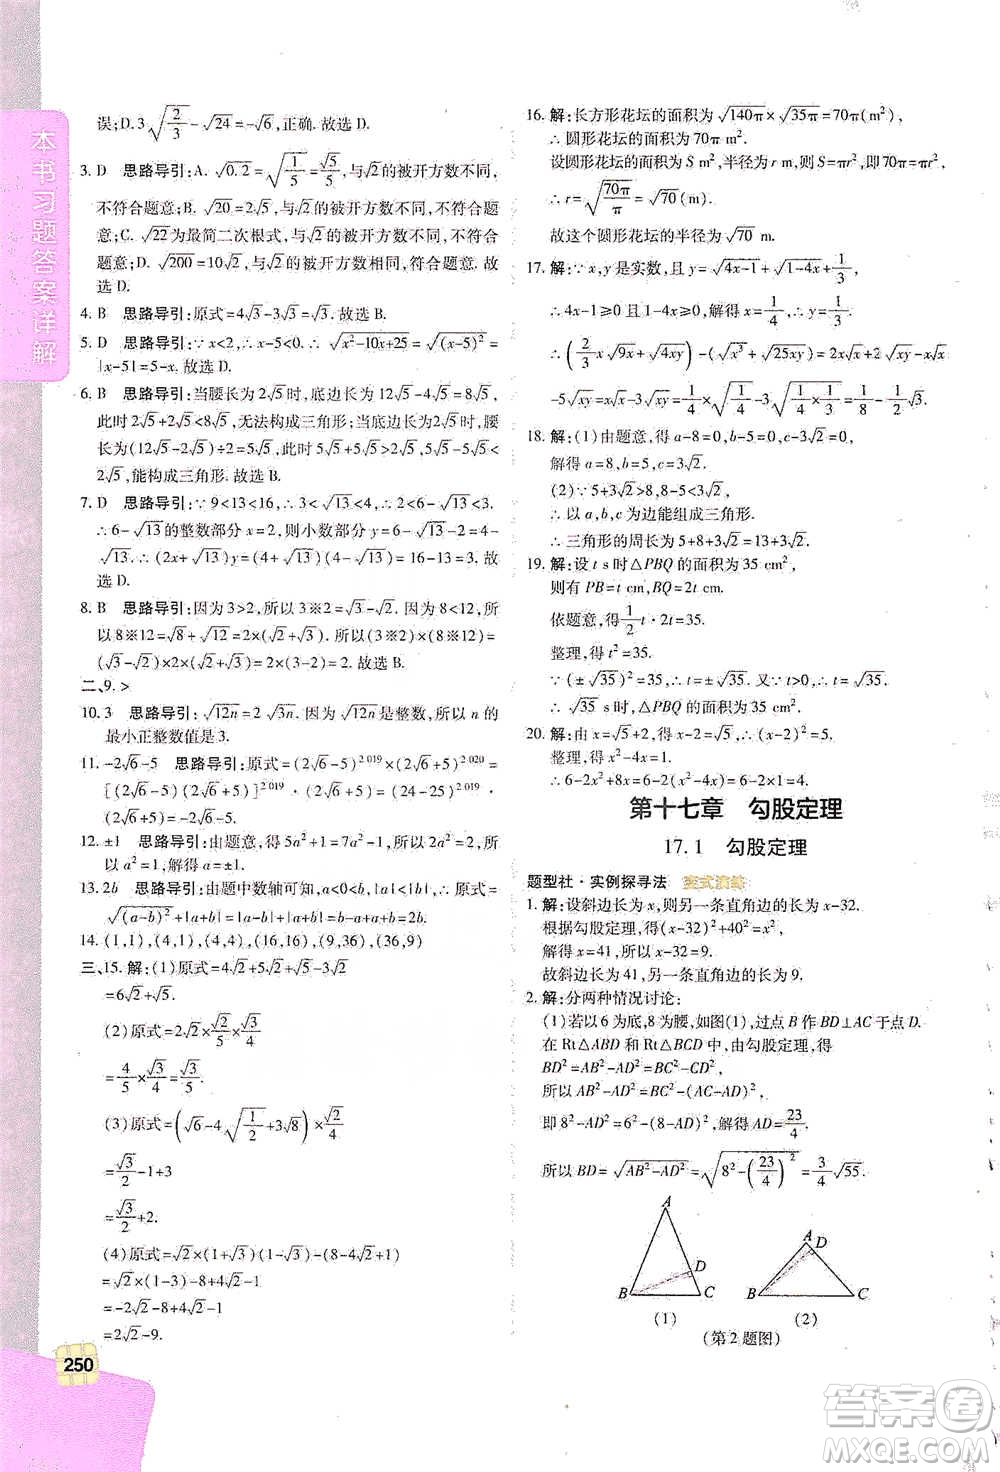 本书习题答案详解
误;D. 3√(2/3)-√24=-√6,正确. 故选 D.
3. D 思路导引:A. √0.2=√(1/5)=√5/5,与√2的被开方数不同,
不符合题意;B. √20=2√5,与√2的被开方数不同,不符合题
意;C. √22为最简二次根式,与√2的被开方数不同,不符合
题意;D. √200=10√2,与√2的被开方数相同,符合题意. 故
选 D.
4. B 思路导引:原式=4√3-3√3=√3. 故选 B.
5. D 思路导引:∵x<2,∴x-5<0. ∴√(x²-10x+25)=√(x-5)²=
|x-5|=5-x. 故选 D.
6. B 思路导引:当腰长为2√5时,底边长为12√5-4√5=8√5,
此时2√5+2√5<8√5,无法构成三角形;当底边长为2√5时,腰
长为(12√5-2√5)÷2=5√5,此时5√5+5√5>2√5,5√5-5√5<
2√5,能构成三角形. 故选 B.
7. D 思路导引:∵9<13<16,∴3<√13<4,∴2<6-√13<3.
∴6-√13的整数部分 x=2,则小数部分 y=6-√13-2=4-
√13. ∴(2x+√13)y=(4+√13)(4-√13)=16-13=3. 故
选 D.
8. B 思路导引:因为3>2,所以3※2=√3-√2. 因为8<12,所
以8※12=√8+√12=2×(√2+√3). 所以(3※2)×(8※12)=
(√3-√2)×2×(√2+√3)=2. 故选 B.
二、9. >
10. 3 思路导引:√12n=2√3n. 因为√12n是整数,所以 n 的
最小正整数值是3.
11. -2√6-5 思路导引:原式=(2√6-5)²⁰¹⁹×(2√6+5)²⁰²⁰=
[(2√6-5)(2√6+5)]²⁰¹⁹×(2√6+5)=(24-25)²⁰¹⁹×
(2√6+5)=-2√6-5.
12. ±1 思路导引:由题意,得5a²+1=7a²-1,所以2a²=2,所
以 a²=1,解得 a=±1.
13. 2b 思路导引:由题中数轴可得 a<0<b,|a|>|b|. 所以原式=
√(a-b)²-|a+b|=|a-b|-|a+b|=b-a+a+b=2b.
14. (1,1),(4,1),(4,4),(16,16),(9,36),(36,9)
三、15. 解:(1)原式=4√2+5√2+√3-3√2
=6√2+√3.
(2)原式=2√2×√2/5×√3/4
=4/5×√3/4=√3/5.
(3)原式=(√6-4√(1/2)+3√8)×√2/4
=√3/2-1+3
=√3/2+2.
(4)原式=√2×(1+√3)(1-√3)-(8-4√2+1)
=√2×(1-3)-8+4√2-1
=-2√2-8+4√2-1
=2√2-9.
250
16. 解:长方形花坛的面积为√140π×√35π=70π(m²),
∴圆形花坛的面积为70π m².
设圆形花坛的面积为 S m²,半径为 r m,则 S=πr²,即70π=πr²,
∴r=√(70π/π)=√70(m).
故这个圆形花坛的半径为√70 m.
17. 解:∵x,y 是实数,且 y<√(4x-1)+√(1-4x)+1/3,
∴4x-1≥0且1-4x≥0,解得 x=1/4,∴y<1/3.
∴(2/3x√9x+√4xy)-(√x³+√25xy)=2x√x+2√xy-x√x
-5√xy=x√x-3√xy=1/4×√(1/4)-3√(1/4×1/3)=1/8-1/2√3.
18. 解:(1)由题意,得 a-8=0,b-5=0,c-3√2=0,
解得 a=8,b=5,c=3√2.
(2)∵5+3√2>8,8-5<3√2,
∴以 a,b,c 为边能组成三角形.
∴三角形的周长为5+8+3√2=13+3√2.
19. 解:设 t s时△PBQ的面积为35 cm²,
则有 PB=t cm,BQ=2t cm.
依题意,得1/2t·2t=35.
整理,得 t²=35.
∵(±√35)²=35,∴t=±√35. ∵t>0,∴t=√35.
∴√35 s时,△PBQ的面积为35 cm².
20. 解:由 x=√5+1,得(x-1)²=5.
整理,得 x²-2x=4.
∴6-2x²+4x=6-2(x²-2x)=6-2×4=-2.
第十七章 勾股定理
17.1 勾股定理
题型社·实例探寻法 变式演练
1. 解:设斜边长为 x,则另一条直角边的长为 x-32.
根据勾股定理,得(x-32)²+40²=x²,
解得 x=41,所以 x-32=9.
故斜边长为41,另一条直角边的长为9.
2. 解:分两种情况讨论:
(1)若以6为底,8为腰,如图(1),过点 B 作 BD⊥AC于点 D.
在 Rt△ABD 和 Rt△BCD 中,由勾股定理,得
BD²=AB²-AD²,BD²=BC²-CD²,
所以 AB²-AD²=BC²-(AC-AD)²,
即8²-AD²=6²-(8-AD)²,解得 AD=23/4,
所以 BD=√(AB²-AD²)=√(8²-(23/4)²)=3/4√55.
A
D
B
C
(1)
A
D
B
C
(2)
(第2题图)
答案卷
MXQE.COM